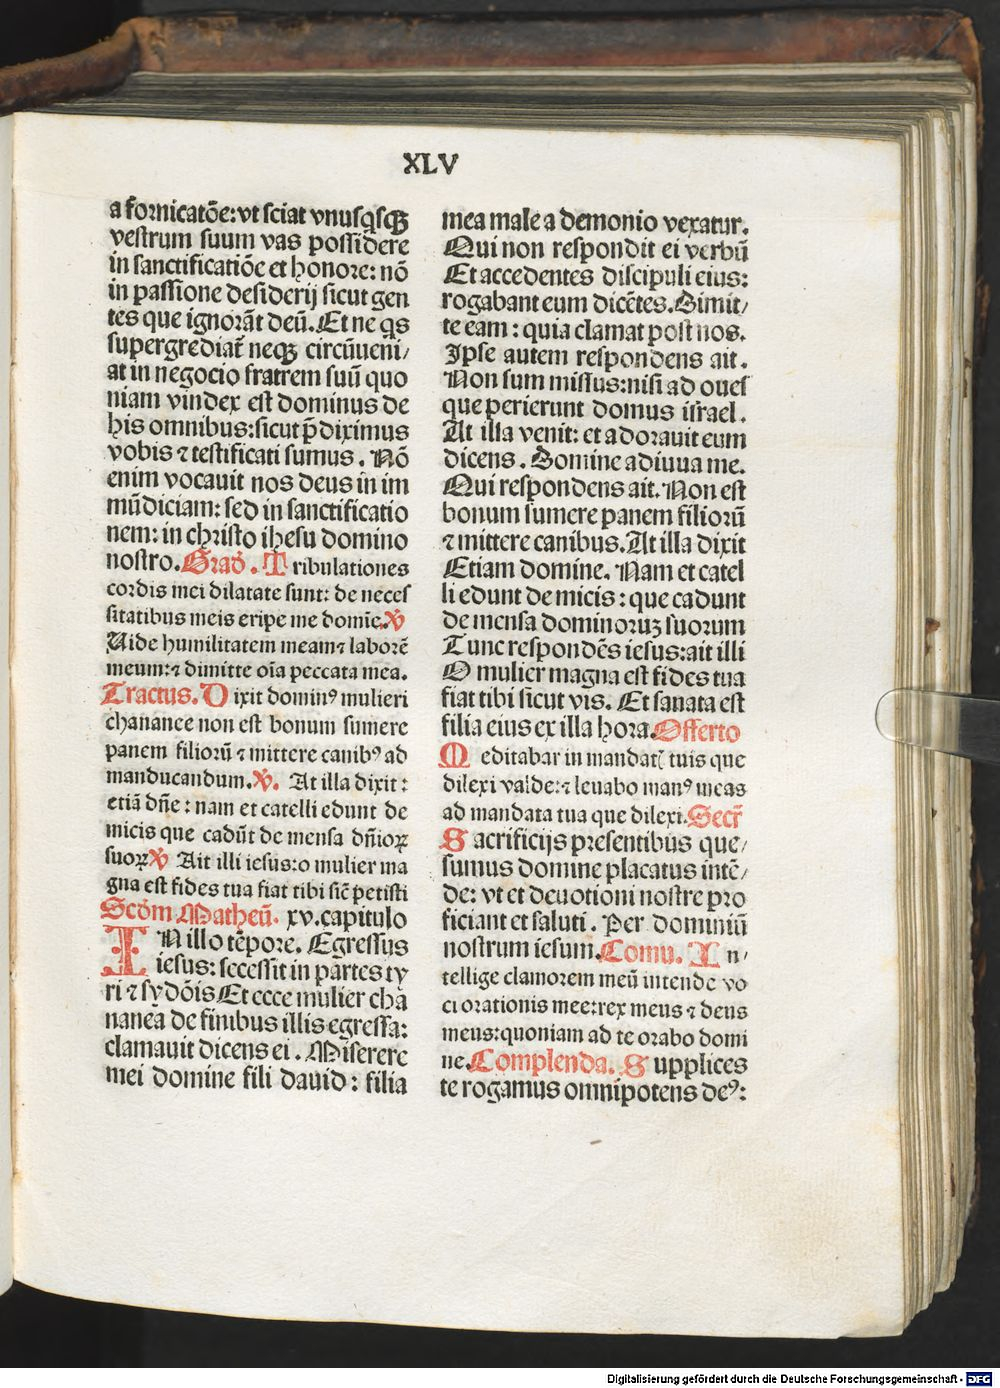 XLV
a fornicatõe: vt sciat vnusq̃sqꝫ
vestrum suum vas possidere
in sanctificatiõe et honore: nõ
in passione desiderij sicut gen
tes que ignorãt deũ. Et ne q̃s
supergrediat᷑ neqꝫ circũueni/
at in negocio fratrem suũ quo
niam vindex est dominus de
his omnibus: sicut p̃diximus
vobis ⁊ testificati sumus. Nõ
enim vocauit nos deus in im
mũdiciam: sed in sanctificatio
nem: in christo ihesu domino
nostro. Grad̃. Tribulationes
cordis mei dilatate sunt: de neces
sitatibus meis eripe me domĩe. ℣
Uide humilitatem meam ⁊ laborẽ
meum: ⁊ dimitte oĩa peccata mea.
Tractus. Dixit dominꝰ mulieri
chananee non est bonum sumere
panem filiorũ ⁊ mittere canibꝰ ad
manducandum. ℣. At illa dixit:
etiã dñe: nam et catelli edunt de
micis que cadũt de mensa dñioꝝ
suoꝝ ℣ Ait illi iesus: o mulier ma
gna est fides tua fiat tibi sic̃ petisti
Scd̃m Matheũ. xv. capitulo
IN illo tẽpore. Egressus
iesus: secessit in partes ty
ri ⁊ sydõis Et ecce mulier cha
nanea de finibus illis egressa:
clamauit dicens ei. Miserere
mei domine fili dauid: filia
mea male a demonio vexatur.
Qui non respondit ei verbũ
Et accedentes discipuli eius:
rogabant eum dicẽtes. Dimit/
te eam: quia clamat post nos.
Ipse autem respondens ait.
Non sum missus: nisi ad oues
que perierunt domus israel.
At illa venit: et adorauit eum
dicens. Domine adiuua me.
Qui respondens ait. Non est
bonum sumere panem filiorũ
⁊ mittere canibus. At illa dixit
Etiam domine. Nam et catel
li edunt de micis: que cadunt
de mensa dominoruꝫ suorum
Tunc respondẽs iesus: ait illi
O mulier magna est fides tua
fiat tibi sicut vis. Et sanata est
filia eius ex illa hora. Offerto
Meditabar in mandatꝭ tuis que
dilexi valde: ⁊ leuabo manꝰ meas
ad mandata tua que dilexi. Secr̃
Sacrificijs presentibus que/
sumus domine placatus intẽ/
de: vt et deuotioni nostre pro
ficiant et saluti. Per dominũ
nostrum iesum. Comu. In/
tellige clamorem meũ intende vo
ci orationis mee: rex meus ⁊ deus
meus: quoniam ad te orabo domi
ne. Complenda. Supplices
te rogamus omnipotens deꝰ:
Digitalisierung gefördert durch die Deutsche Forschungsgemeinschaft - DFG